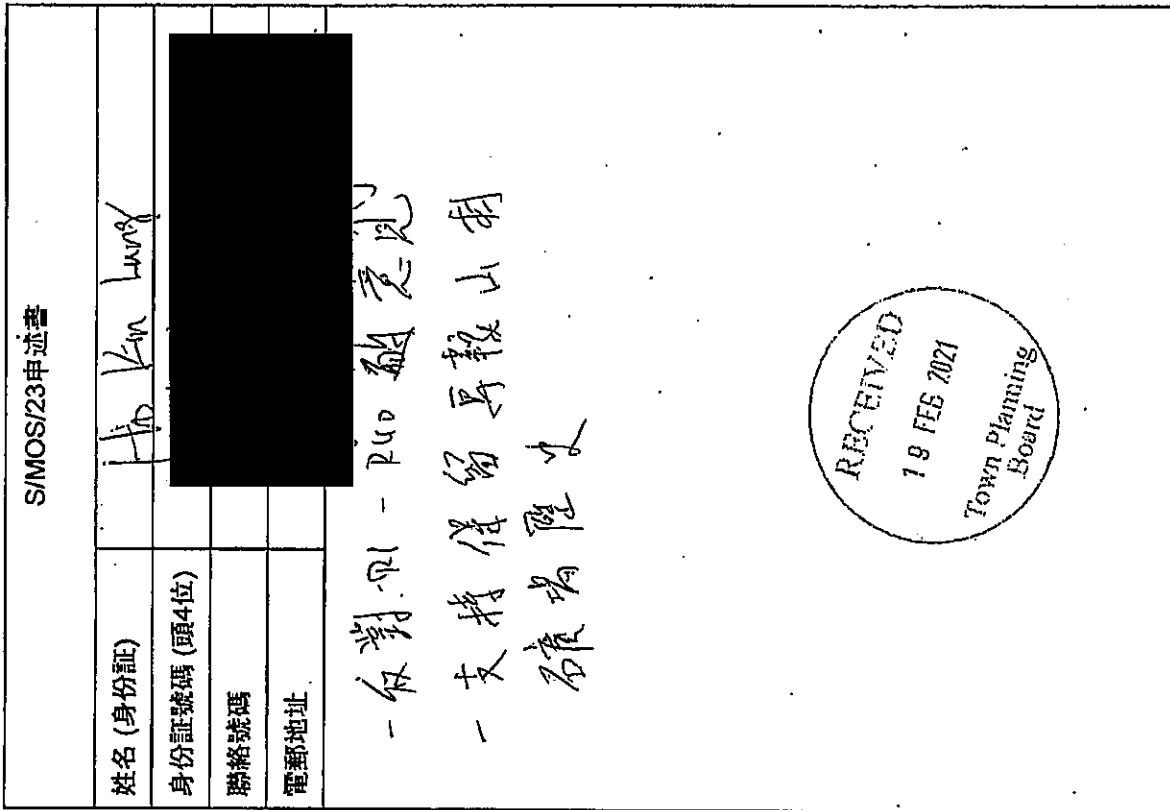 S/MOS/23申述書
姓名 (身份証) Ho Kin Lung
身份証號碼 (頭4位)
聯絡號碼
電郵地址
- 反對 R1 - R40 的意見
- 支持保留馬鞍山村
礦場歷史
RECEIVED
18 FEB 2021
Town Planning
Board